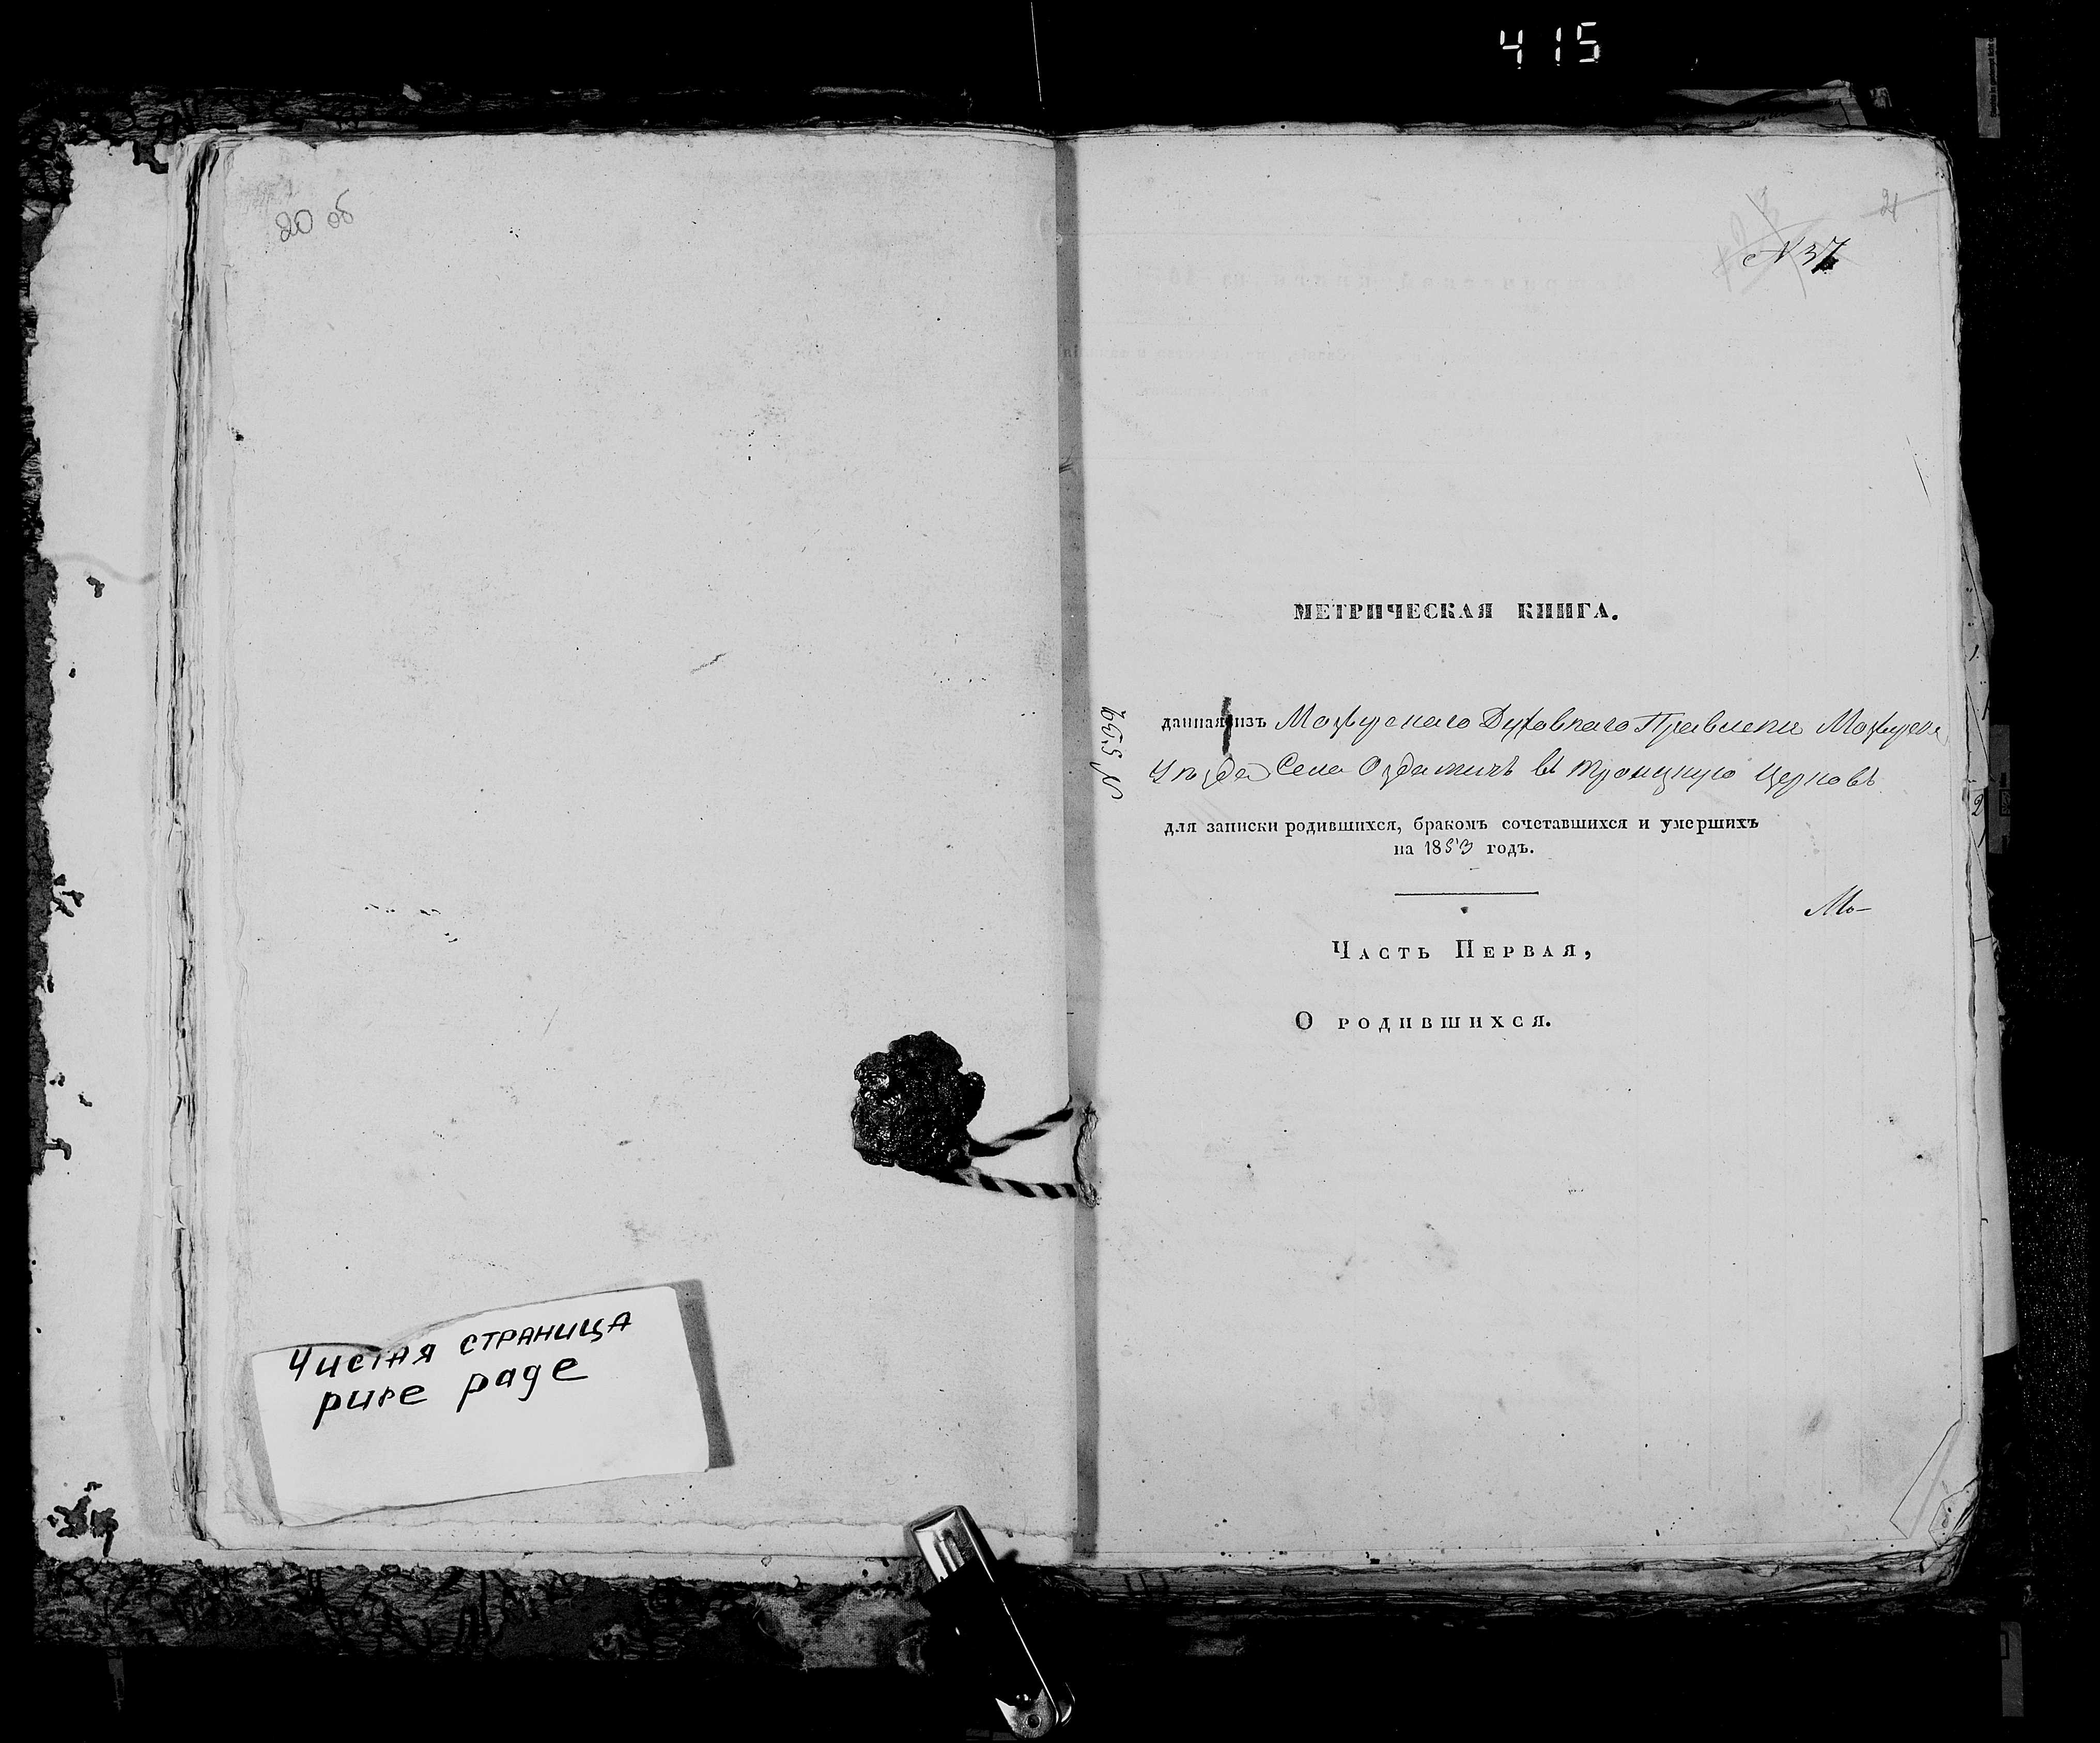 415
20 об
21
N 37
МЕТРИЧЕСКАЯ КНИГА.
N 553
данная изъ Мозырскаго Духовнаго Правленія Мозырска
Уѣзда Села Оздамичь въ Троицкую Церковь
для записки родившихся, бракомъ сочетавшихся и умершихъ
на 1853 годъ.
Мо-
Часть Первая,
О родившихся.
Чистая страница
pure page